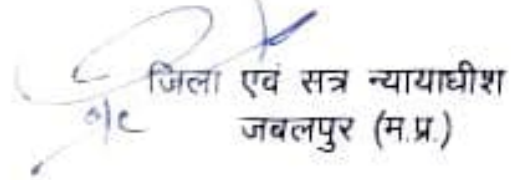 जिला एवं सत्र न्यायाधीश
जबलपुर (म.प्र.)